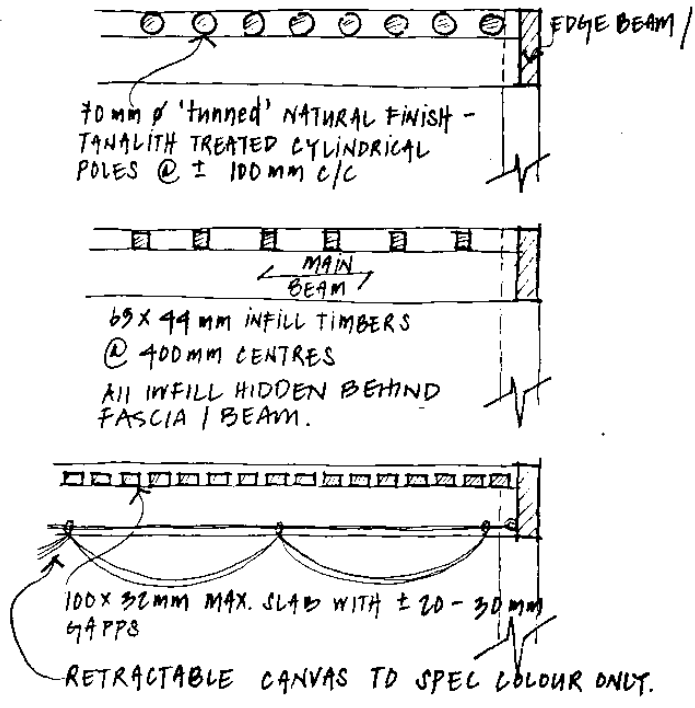 EDGE BEAM /
70mm ø 'tunned' NATURAL FINISH -
TANALITH TREATED CYLINDRICAL
POLES @ ± 100mm C/C
MAIN
BEAM
69 x 44mm INFILL TIMBERS
@ 400mm CENTRES
All INFILL HIDDEN BEHIND
FASCIA / BEAM.
100 x 32mm MAX. SLAB WITH ± 20 - 30mm
GAPPS
RETRACTABLE CANVAS TO SPEC COLOUR ONLY.